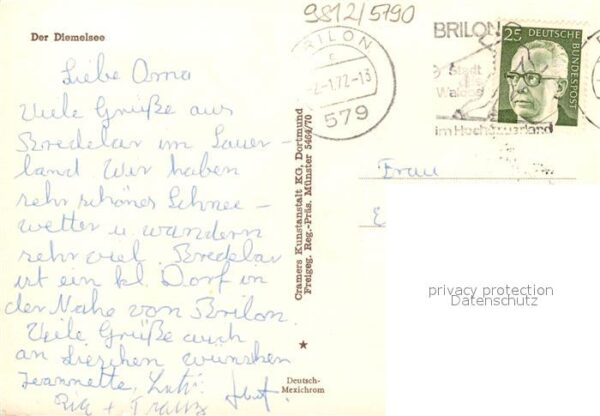 9812/5790
Der Diemelsee
Liebe Oma
Viele Grüße aus
Bredelar im Sauer-
land Wir haben
sehr schönes Schnee-
wetter u wandern
sehr viel. Bredelar
ist ein kl. Dorf in
der Nähe von Brilon.
Viele Grüße auch
an Lieschen wünschen
Jeannette,
+ Franz
Cramers Kunstanstalt KG, Dortmund
Freigeg. Reg.-Präs. Münster 5464/70
Deutsch-
Mexichrom
BRILON
c
-2-1.72-13
579
BRILON
Stadt
Waldes
im Hochsauerland
25
DEUTSCHE
BUNDESPOST
Frau
E
privacy protection
Datenschutz